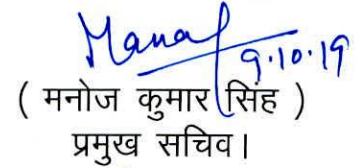 Manoj
9.10.19
( मनोज कुमार सिंह )
प्रमुख सचिव।